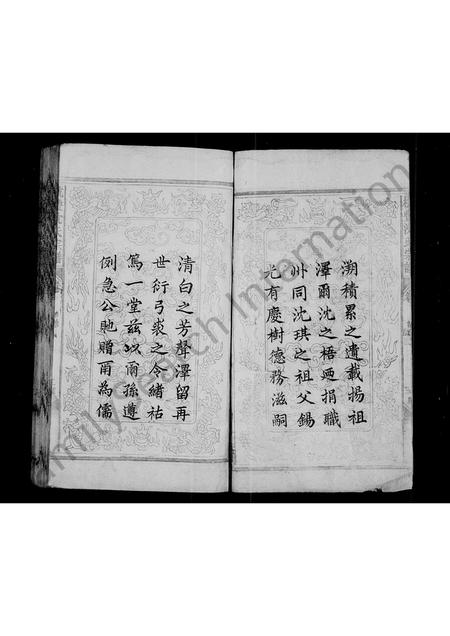 溯積累之遺載揚祖
澤爾沈之梧廼捐職
州同沈琪之祖父錫
光有慶樹德務滋嗣
清白之芳聲澤留再
世衍弓裘之令緒祜
篤一堂茲以爾孫遵
例急公貤贈爾為儒